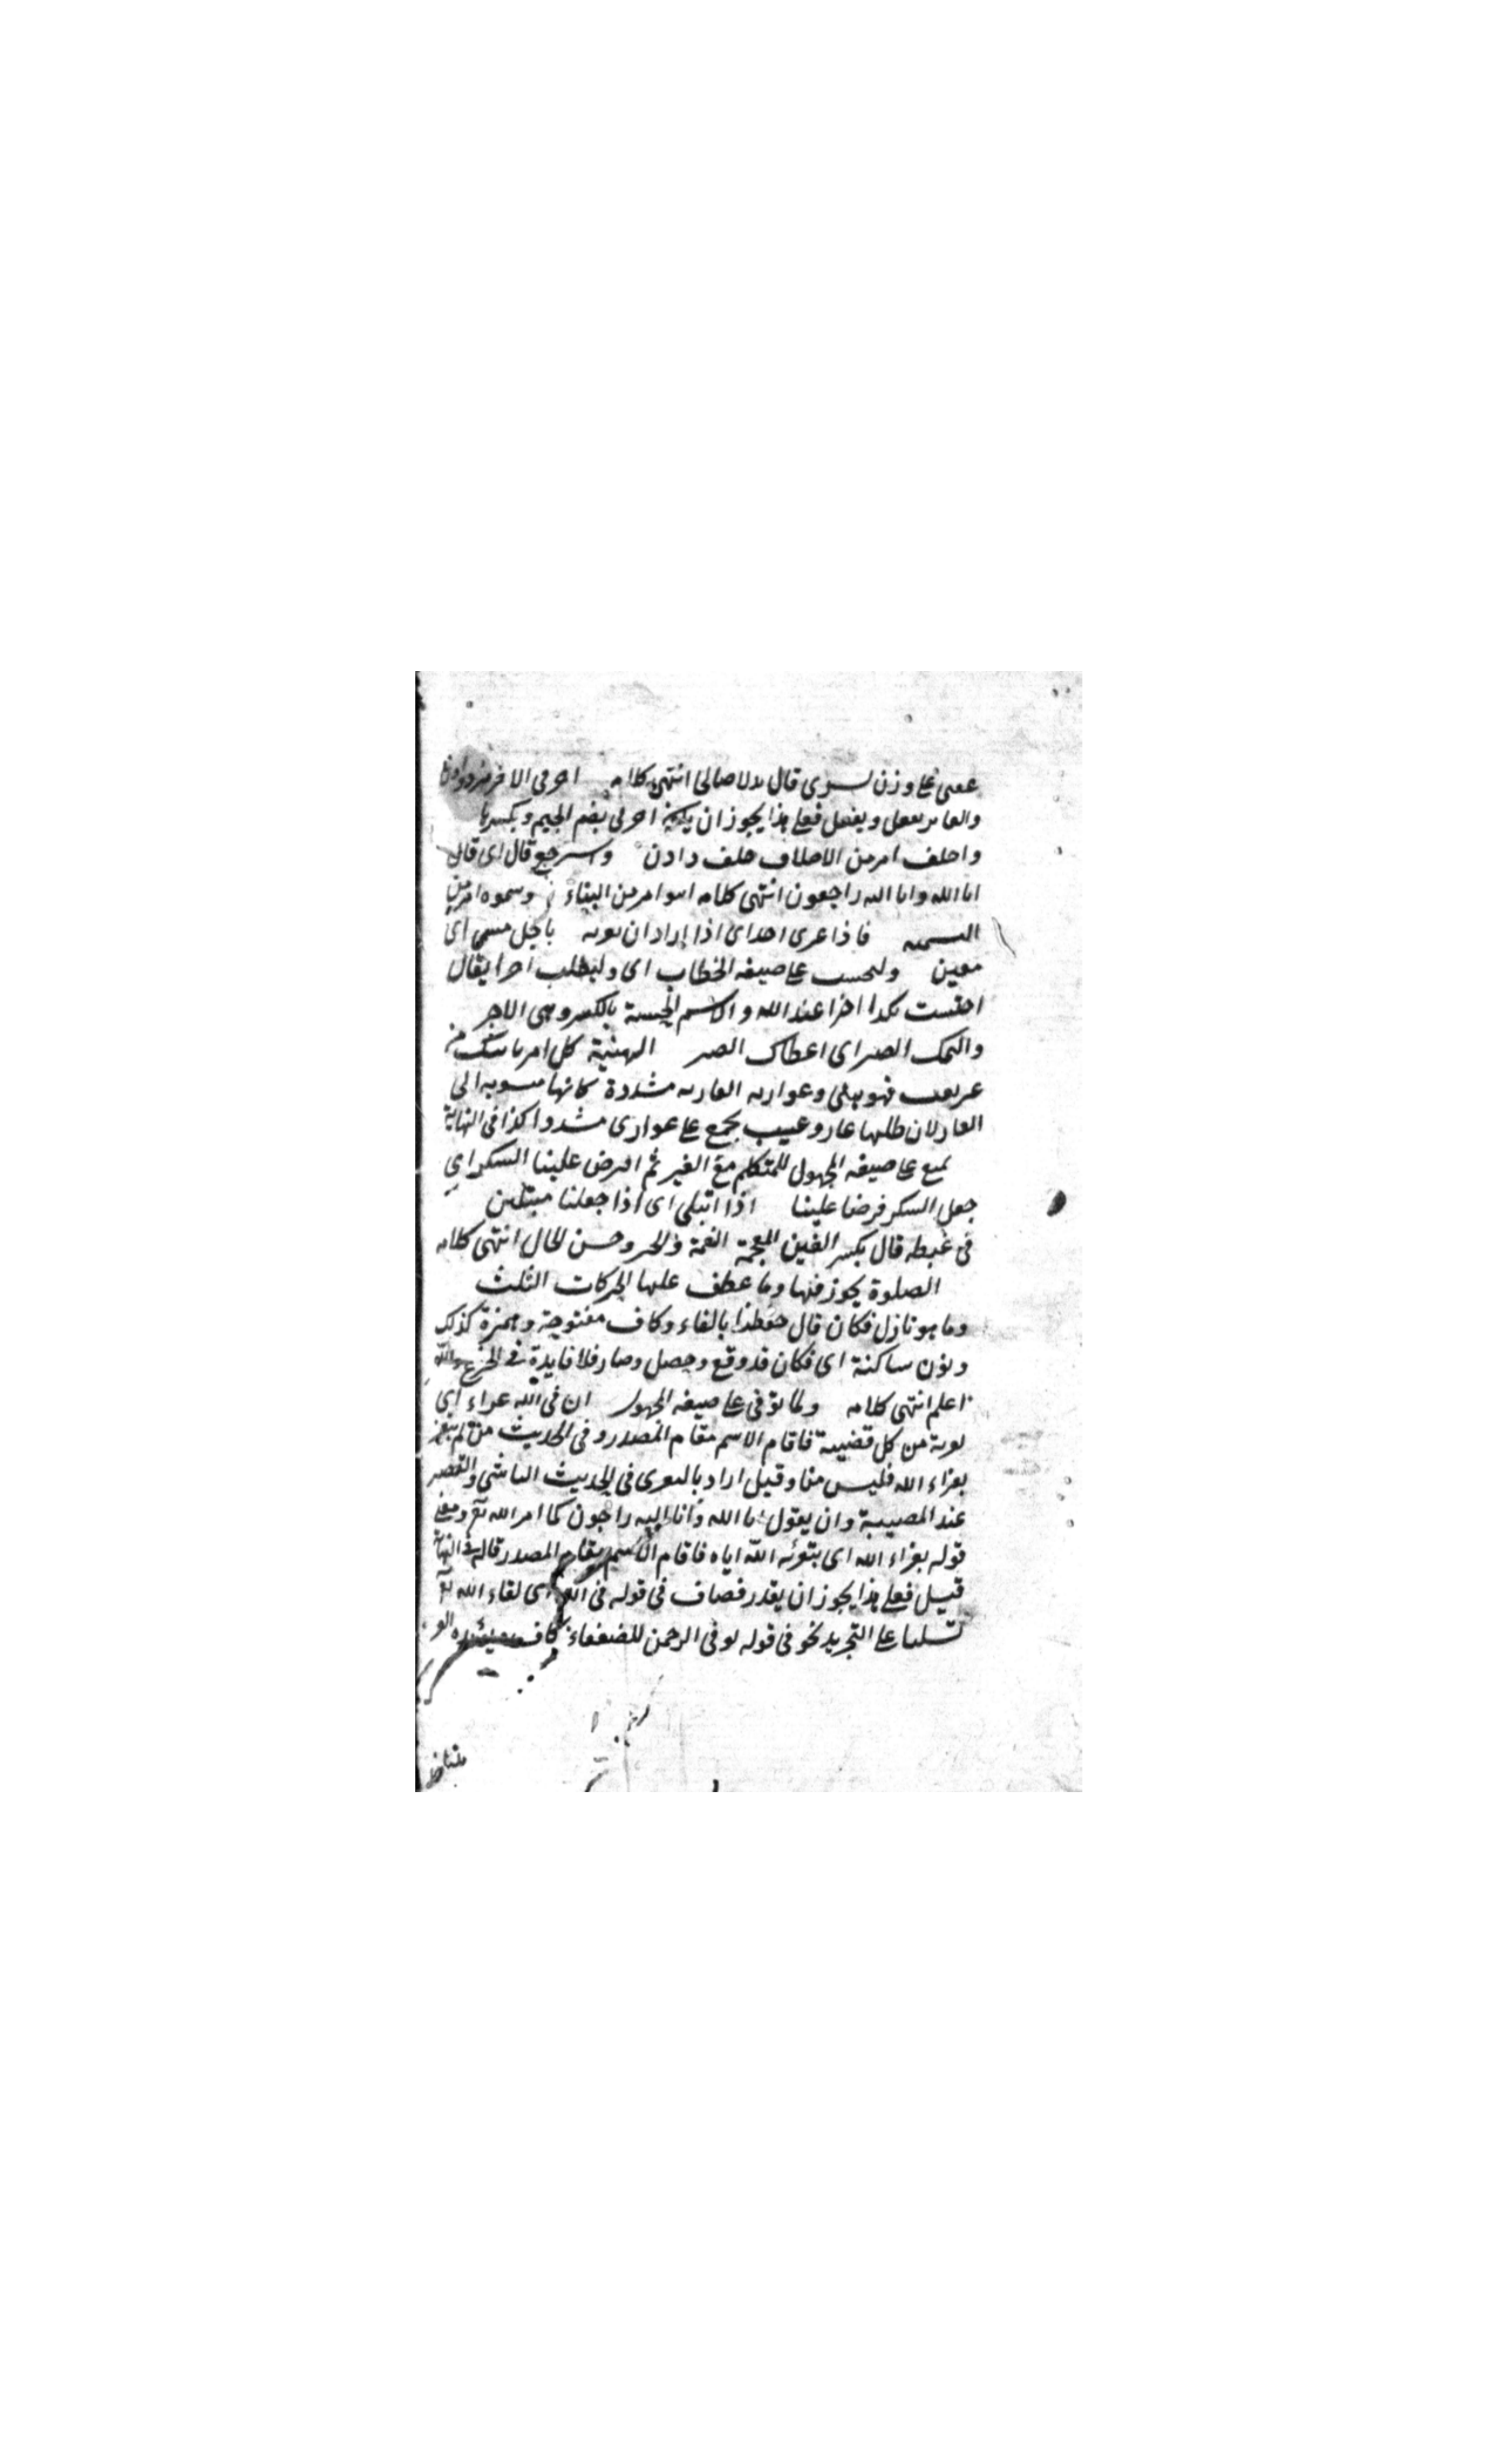 عقبى على وزن بسرى قال بدلا صالحا انتهى كلامه اجرنى الاجر مزد دادن
والغابر يفعل ويفعل فعلى هذا يجوز ان يكون اجرنى بضم الجيم وبكسرها
واخلف امر من الاخلاف خلف دادن واسترجع قال اى قال
انا لله وانا اليه راجعون انتهى كلامه ابنوا امر من البناء وسموه امر من
التسمية فاذا عزى احدا اى اذا اراد ان يعزيه باجل مسمى اى
معين ولتحتسب على صيغة الخطاب اى وليطلب اجرا يقال
احتسبت بكذا اجرا عند الله والاسم الحسبة بالكسر وهى الاجر
والهمك الصبر اى اعطاك الصبر الهنيئة كل امر ياتيك من
غير تعب فهو هنى وعواريه العارية مشددة كانها منسوبة الى
العار لان طلبها عار وعيب يجمع على عوارى مشددا كذا فى النهاية
نمتع على صيغة المجهول للمتكلم مع الغير ثم افترض علينا الشكر اى
جعل الشكر فرضا علينا اذا ابتلى اى اذا جعلنا مبتلين
فى غبطة قال بكسر الغين المعجمة النعمة والخير وحسن الحال انتهى كلامه
الصلوة يجوز فيها وما عطف عليها الحركات الثلث
وما هو نازل فكان قال حفظنا بالفاء وكاف مفتوحة وهمزة كذلك
ونون ساكنة اى فكان قد وقع وحصل وصار فلا فايدة فى الجزع والله
اعلم انتهى كلامه ولما توفى على صيغة المجهول ان فى الله عزاء اى
تعزية من كل قضيبة فاقام الاسم مقام المصدر وفى الحديث من لم يتعز
بعزاء الله فليس منا وقيل اراد بالتعزى فى الحديث التاسى والتصبر
عند المصيبة وان يقول انا لله وانا اليه راجعون كما امر الله تعٓ ومعنى
قوله بعزاء الله اى بتعزية الله اياه فاقام الاسم مقام المصدر قاله فى النهاية
قيل فعلى هذا يجوز ان يقدر مضاف فى قوله فى الله اى لقاء الله تعٓ
تسليا على التجريد نحو فى قوله وفى الرحمن للضعفاء كاف